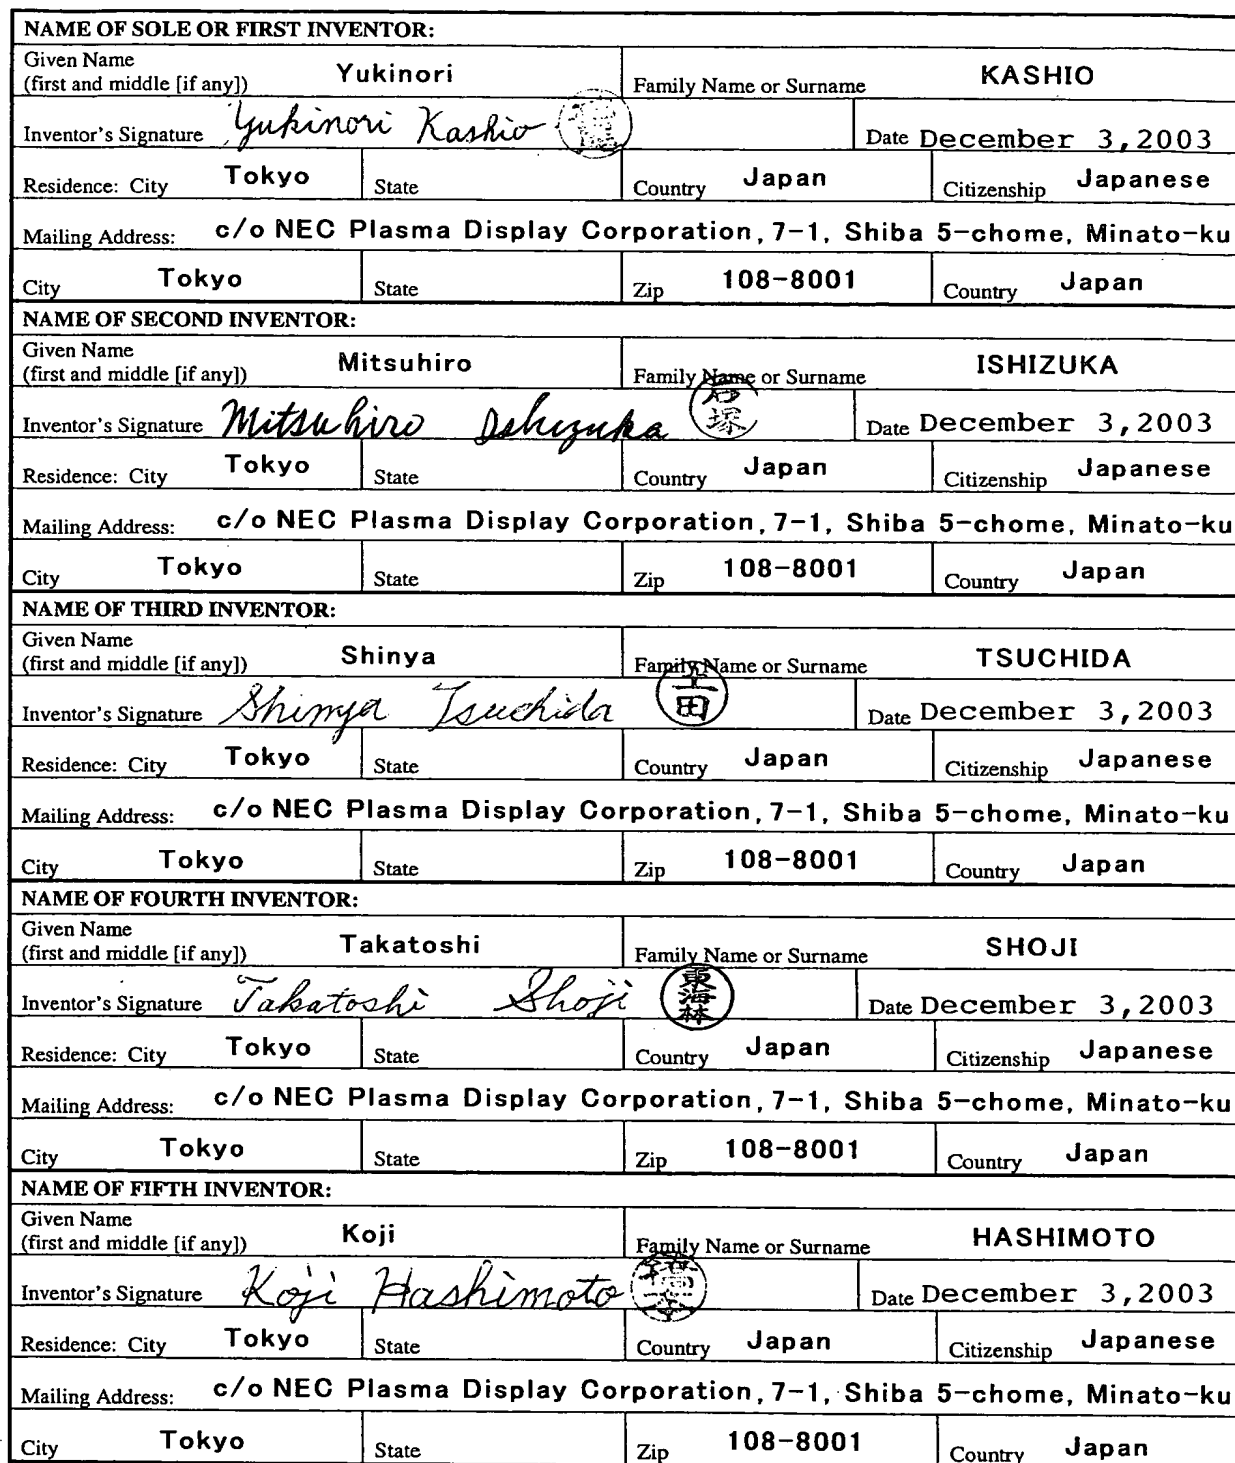 NAME OF SOLE OR FIRST INVENTOR:
Given Name
(first and middle [if any]) Yukinori Family Name or Surname KASHIO
Inventor's Signature Yukinori Kashio Date December 3,2003
Residence: City Tokyo State Country Japan Citizenship Japanese
Mailing Address: c/o NEC Plasma Display Corporation, 7-1, Shiba 5-chome, Minato-ku
City Tokyo State Zip 108-8001 Country Japan
NAME OF SECOND INVENTOR:
Given Name
(first and middle [if any]) Mitsuhiro Family Name or Surname ISHIZUKA
Inventor's Signature Mitsuhiro Ishizuka 石塚 Date December 3,2003
Residence: City Tokyo State Country Japan Citizenship Japanese
Mailing Address: c/o NEC Plasma Display Corporation, 7-1, Shiba 5-chome, Minato-ku
City Tokyo State Zip 108-8001 Country Japan
NAME OF THIRD INVENTOR:
Given Name
(first and middle [if any]) Shinya Family Name or Surname TSUCHIDA
Inventor's Signature Shinya Tsuchida 土田 Date December 3,2003
Residence: City Tokyo State Country Japan Citizenship Japanese
Mailing Address: c/o NEC Plasma Display Corporation, 7-1, Shiba 5-chome, Minato-ku
City Tokyo State Zip 108-8001 Country Japan
NAME OF FOURTH INVENTOR:
Given Name
(first and middle [if any]) Takatoshi Family Name or Surname SHOJI
Inventor's Signature Takatoshi Shoji 東海林 Date December 3,2003
Residence: City Tokyo State Country Japan Citizenship Japanese
Mailing Address: c/o NEC Plasma Display Corporation, 7-1, Shiba 5-chome, Minato-ku
City Tokyo State Zip 108-8001 Country Japan
NAME OF FIFTH INVENTOR:
Given Name
(first and middle [if any]) Koji Family Name or Surname HASHIMOTO
Inventor's Signature Koji Hashimoto Date December 3,2003
Residence: City Tokyo State Country Japan Citizenship Japanese
Mailing Address: c/o NEC Plasma Display Corporation, 7-1, Shiba 5-chome, Minato-ku
City Tokyo State Zip 108-8001 Country Japan